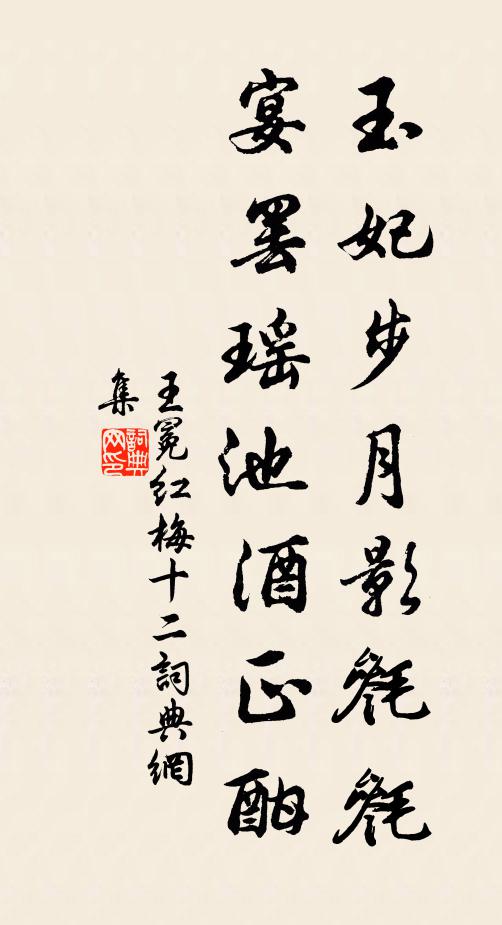 玉妃步月影毿毿
宴罢瑶池酒正酣
王冕红梅十二詞典網
集
詞典网印